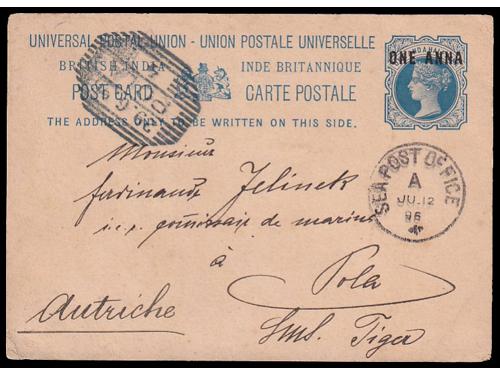 UNIVERSAL POSTAL UNION - UNION POSTALE UNIVERSELLE
BRITISH INDIA INDE BRITANNIQUE
POST CARD CARTE POSTALE
THE ADDRESS ONLY TO BE WRITTEN ON THIS SIDE.
ONE ANNA
SEA POST OFFICE
A
JU.12
96
Monsieur
Ferdinand Jelinek
commissair de marine
à
Pola
Autriche
Sms. Tiger